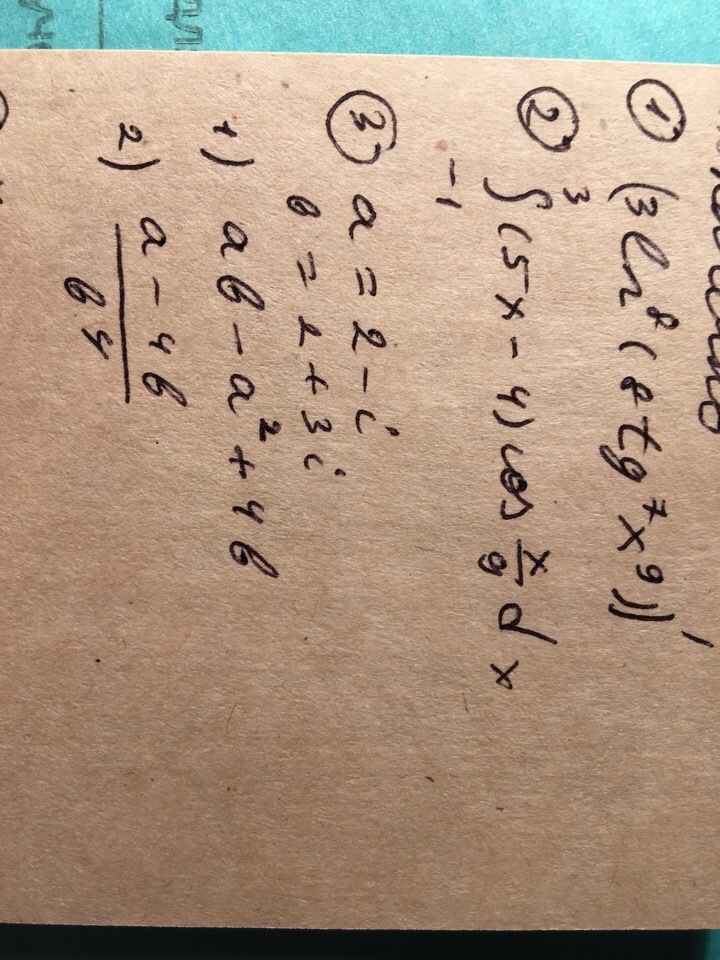 ① (3 ln⁸ (8 tg⁷ x⁹))'
② ∫₋₁³ (5x - 4) cos x/9 dx
③ a = 2 - i
b = 2 + 3i
1) ab - a² + 4b
2) a - 4b
b⁴